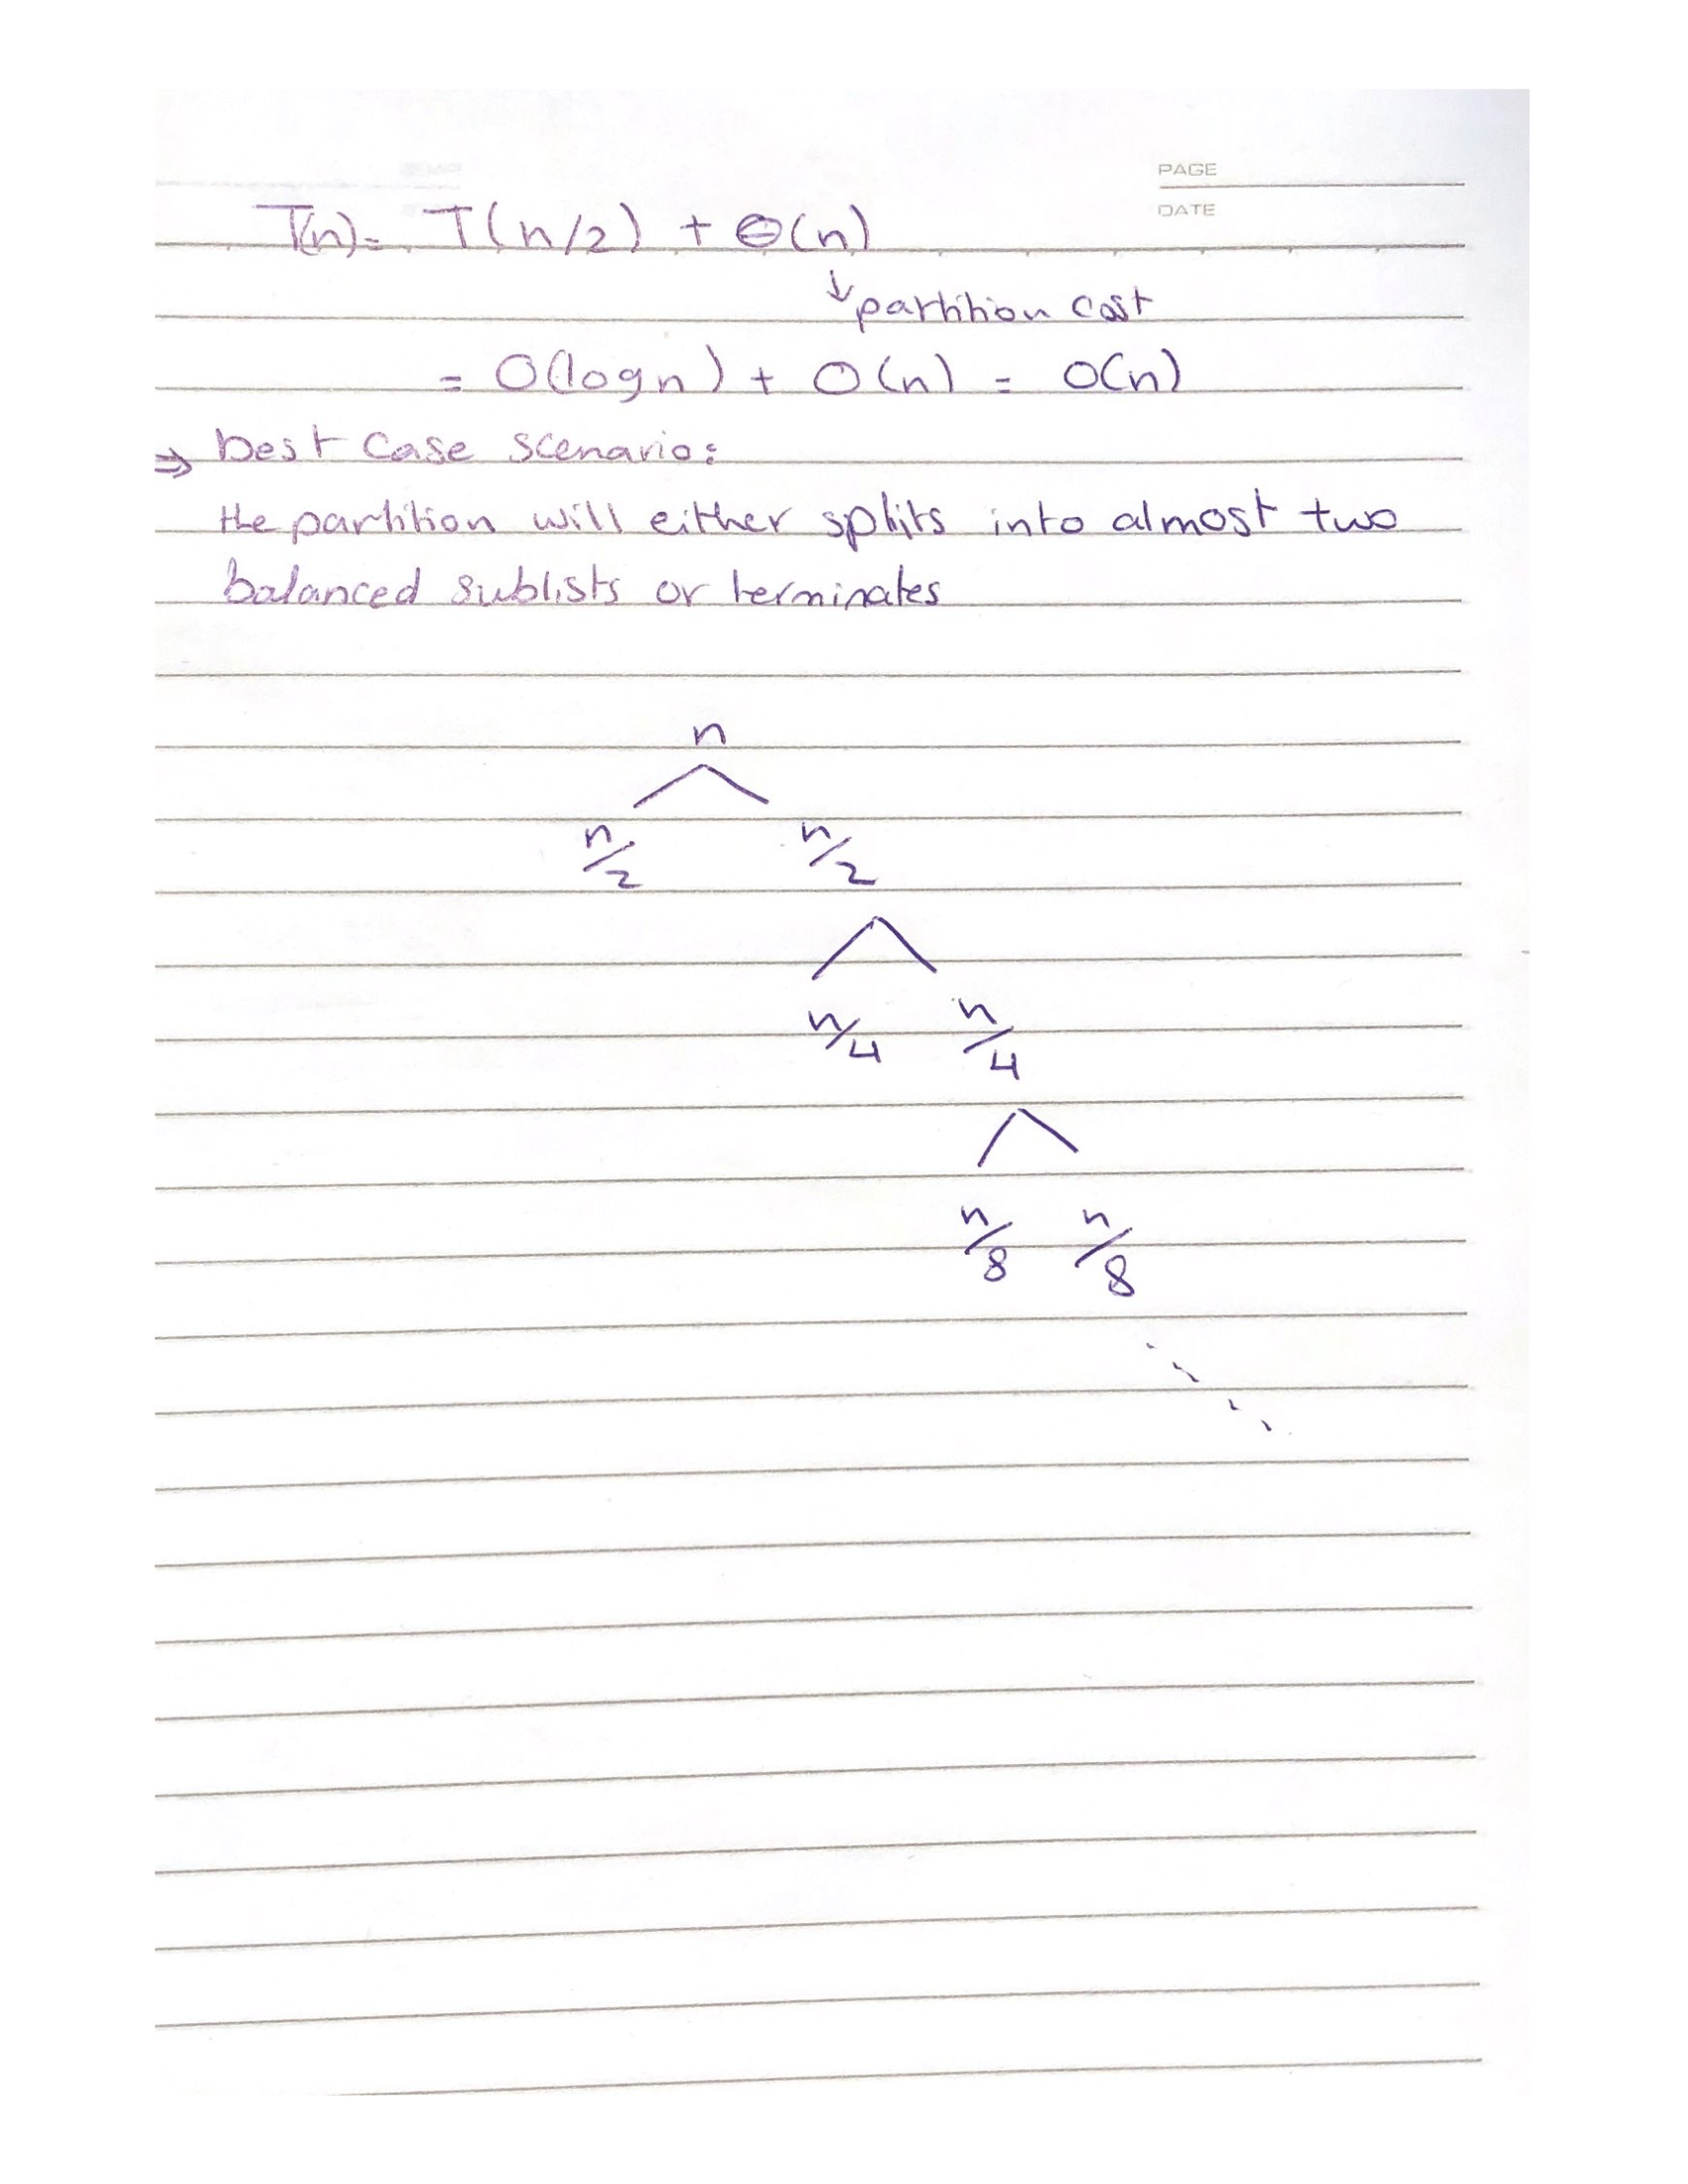 PAGE
DATE
T(n) = T(n/2) + Θ(n)
↓ partition cost
= O(logn) + O(n) = O(n)
⇒ best case scenario:
the partition will either splits into almost two
balanced sublists or terminates
n
n/2 n/2
n/4 n/4
n/8 n/8